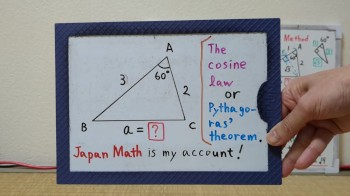 A
60°
3
2
B
C
a = ?
The
cosine
law
or
Pythago-
ras'
theorem.
Japan Math is my account!
Method